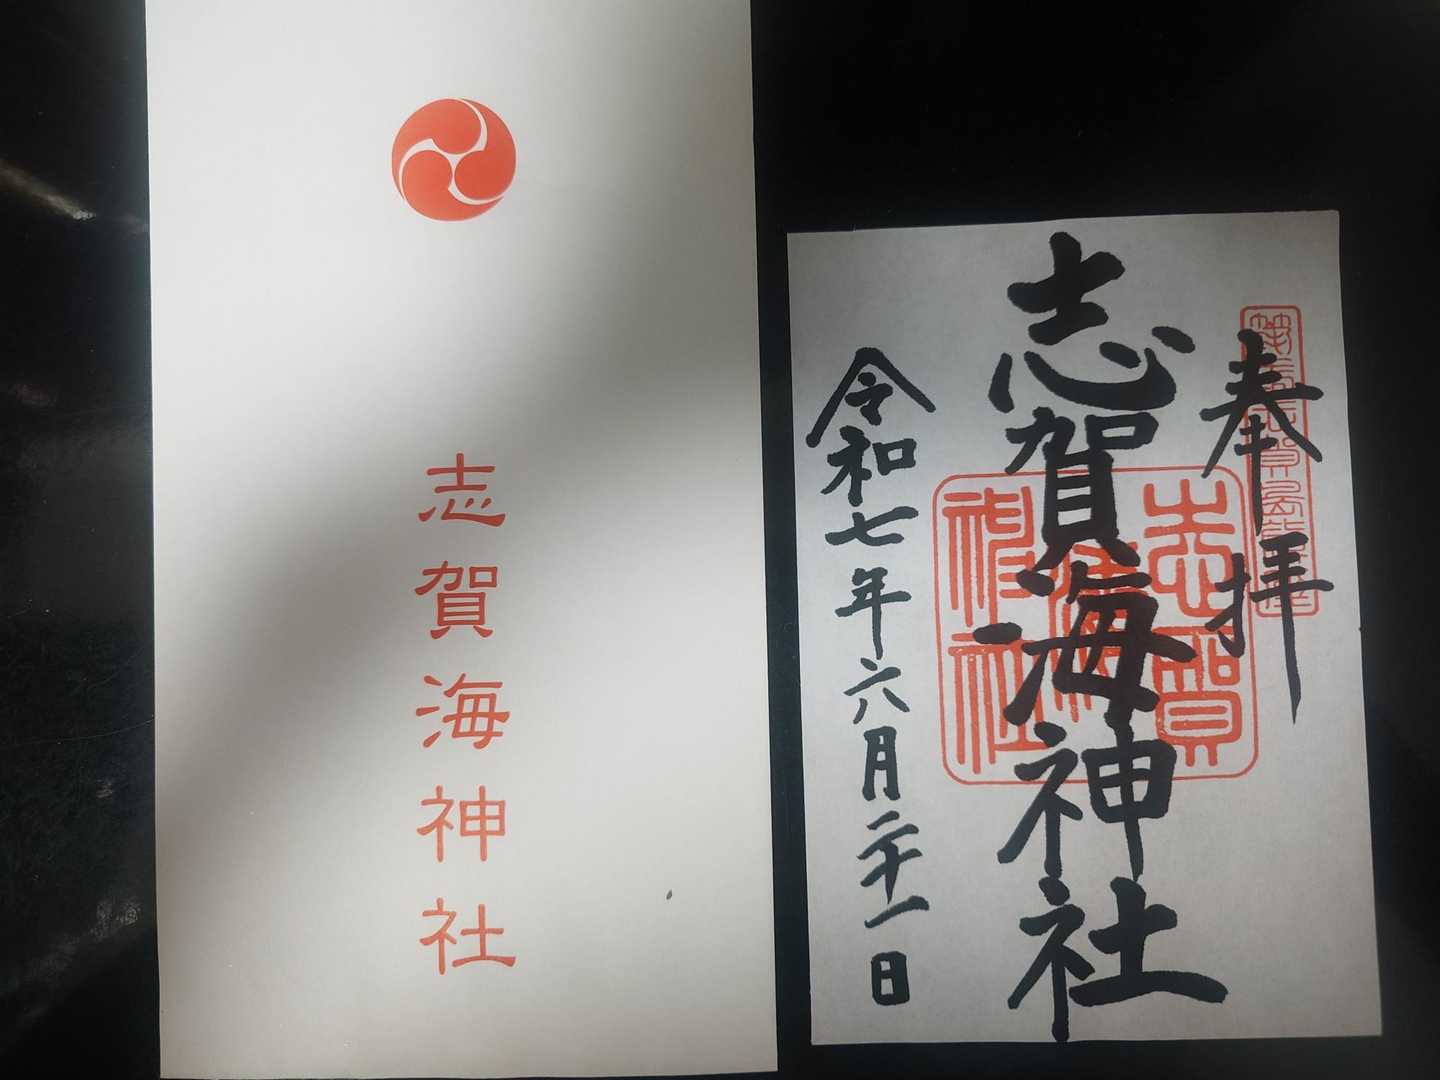 志賀海神社
奉拝
志賀海神社
志賀
海
神社
令和七年六月二十一日